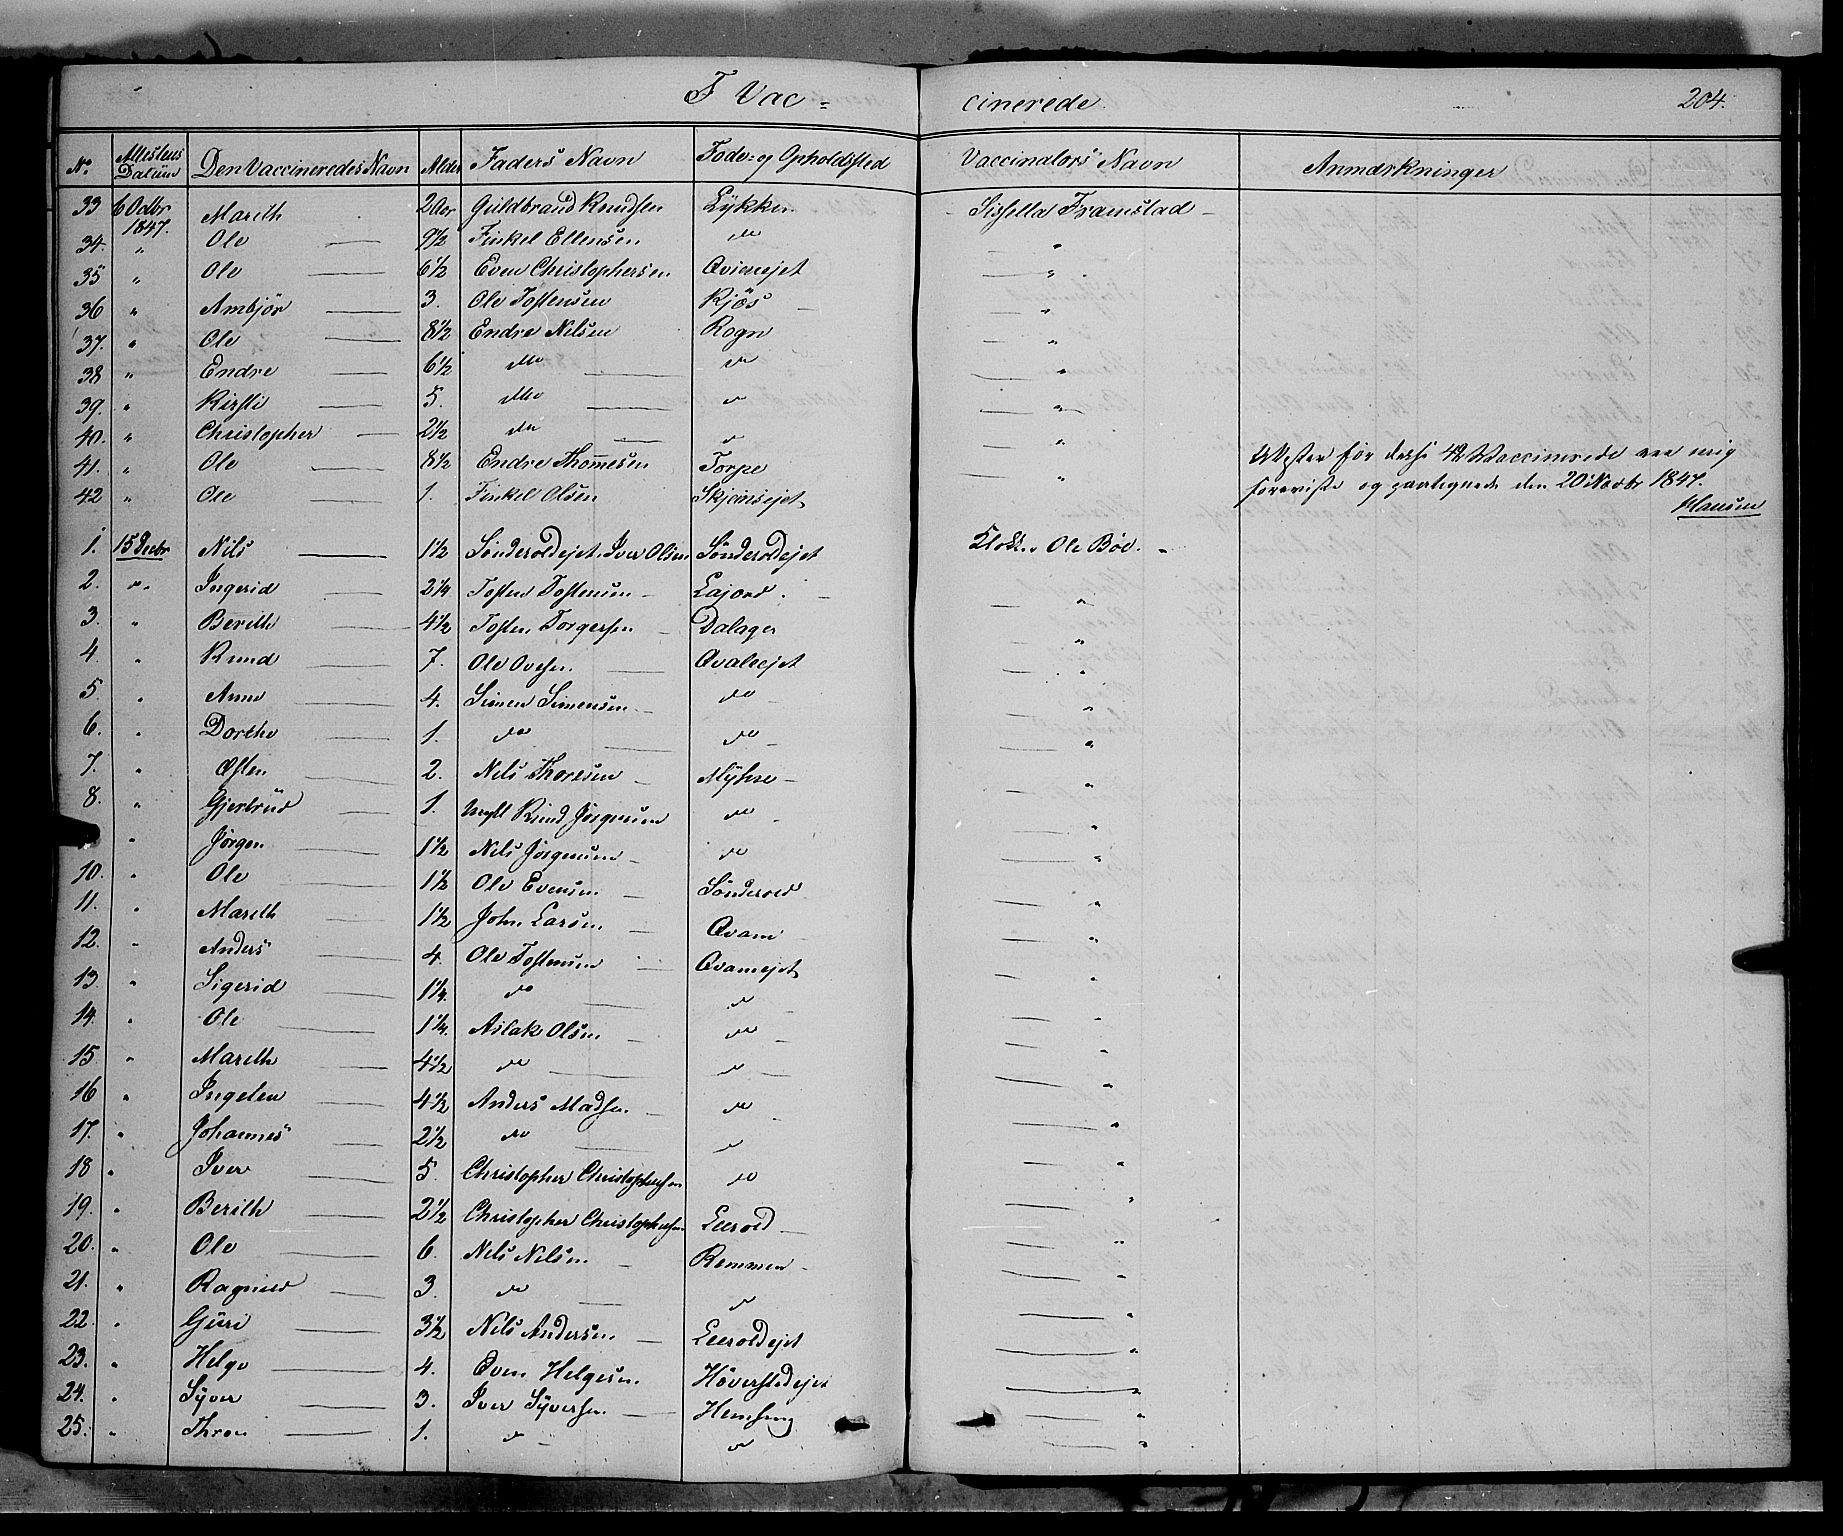 F Vac=
cinerede
204.
No Attestens Datum Den Vaccineredes Navn Alder Faders Navn Føde- og Opholdsted Vaccinators Navn Anmærkninger
33 6 Octbr 1847. Marith 2 Aar Guldbrand Knudsen Lykken Sissella Framstad
34. " Ole 9½ Finkel Ellensen do "
35 " Ole 6½ Even Christophersen Qvienejet "
36 " Ambjør 3. Ole Tostensen Kjös "
37. " Ole 8½ Endre Nilsen Rogn "
38 " Endre 6½ do do "
39. " Kirsti 5. do do "
40. " Christopher 2½ do do "
41. " Ole 8½ Endre Thomesen Torpe "
42 " Ole 1. Finkel Olsen Skjönsejet "
Attester for disse 42 Vaccinerede ere mig
foreviste og paategnede den 20 Novbr 1847.
Hansen
1. 15 Decbr Nils 1½ Sönderoldejet. Iver Olsen Sönderoldejet Klokk. Ole Böe
2. " Ingerid 2¼ Tosten Tostensen Lajord "
3. " Berith 4½ Tosten Torgersen Dalager "
4. " Knud 7. Ole Ovesen Qvaleejet "
5. " Anne 4. Simen Simensen do "
6. " Dorthe 1. do do "
7. " Østen 2. Nils Thoresen Myhre "
8. " Gjertrud 1. Knud Jörgensen do "
" Jörgen 1½ Nils Jörgensen do "
10. " Ole 1½ Ole Evensen Sönderold "
11. " Marith 1½ John Larsen Qvam "
12. " Anders 4. Ole Tostensen Qvamejet "
13. " Sigerid 1¼. do do "
14. " Ole 1¼. Aslak Olsen do "
15 " Marith 4½ do do "
16 " Ingelen 4½ Anders Madsen do "
17. " Johannes 2½ do do "
18 " Iver 5. Christopher Christophersen do "
19. " Berith 2½ Christopher Christophersen Leerold "
20. " Ole 6. Nils Nilsen Remmen "
21. " Ragnild 3. do do "
22. " Guri 3½ Nils Andersen Leeroldejet "
23. " Helge 4. Even Helgesen Höverstedejet "
24. " Syver 3. Iver Syversen Hemsing "
25. " Thron 1. do do "